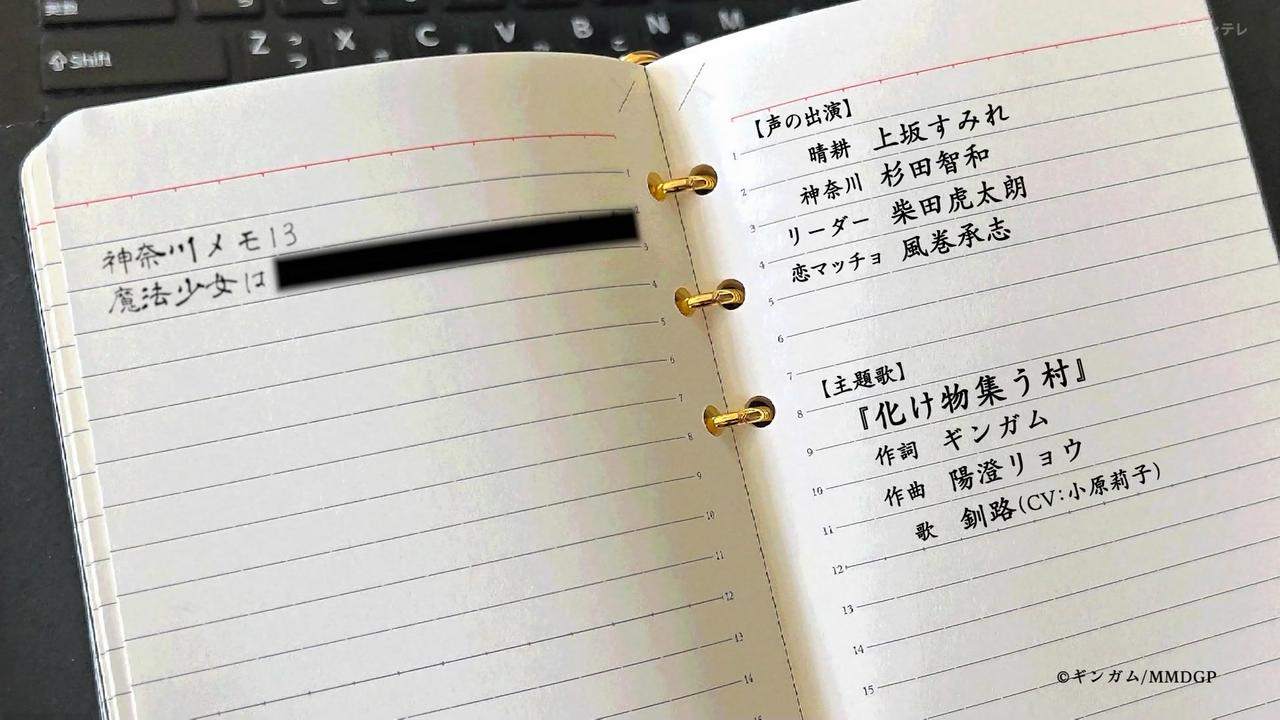 英数
Shift
Z っ つ X C V B こ N M
8カンテレ
神奈川メモ13
魔法少女は
1
2
3
4
5
6
7
8
9
10
11
12
13
14
15
【声の出演】
1
晴耕 上坂すみれ
2
神奈川 杉田智和
3
リーダー 柴田虎太朗
4
恋マッチョ 風巻承志
5
6
7
【主題歌】
8
『化け物集う村』
9
作詞 ギンガム
10
作曲 陽澄リョウ
11
歌 釧路(CV:小原莉子)
12
13
14
15
©ギンガム/MMDGP